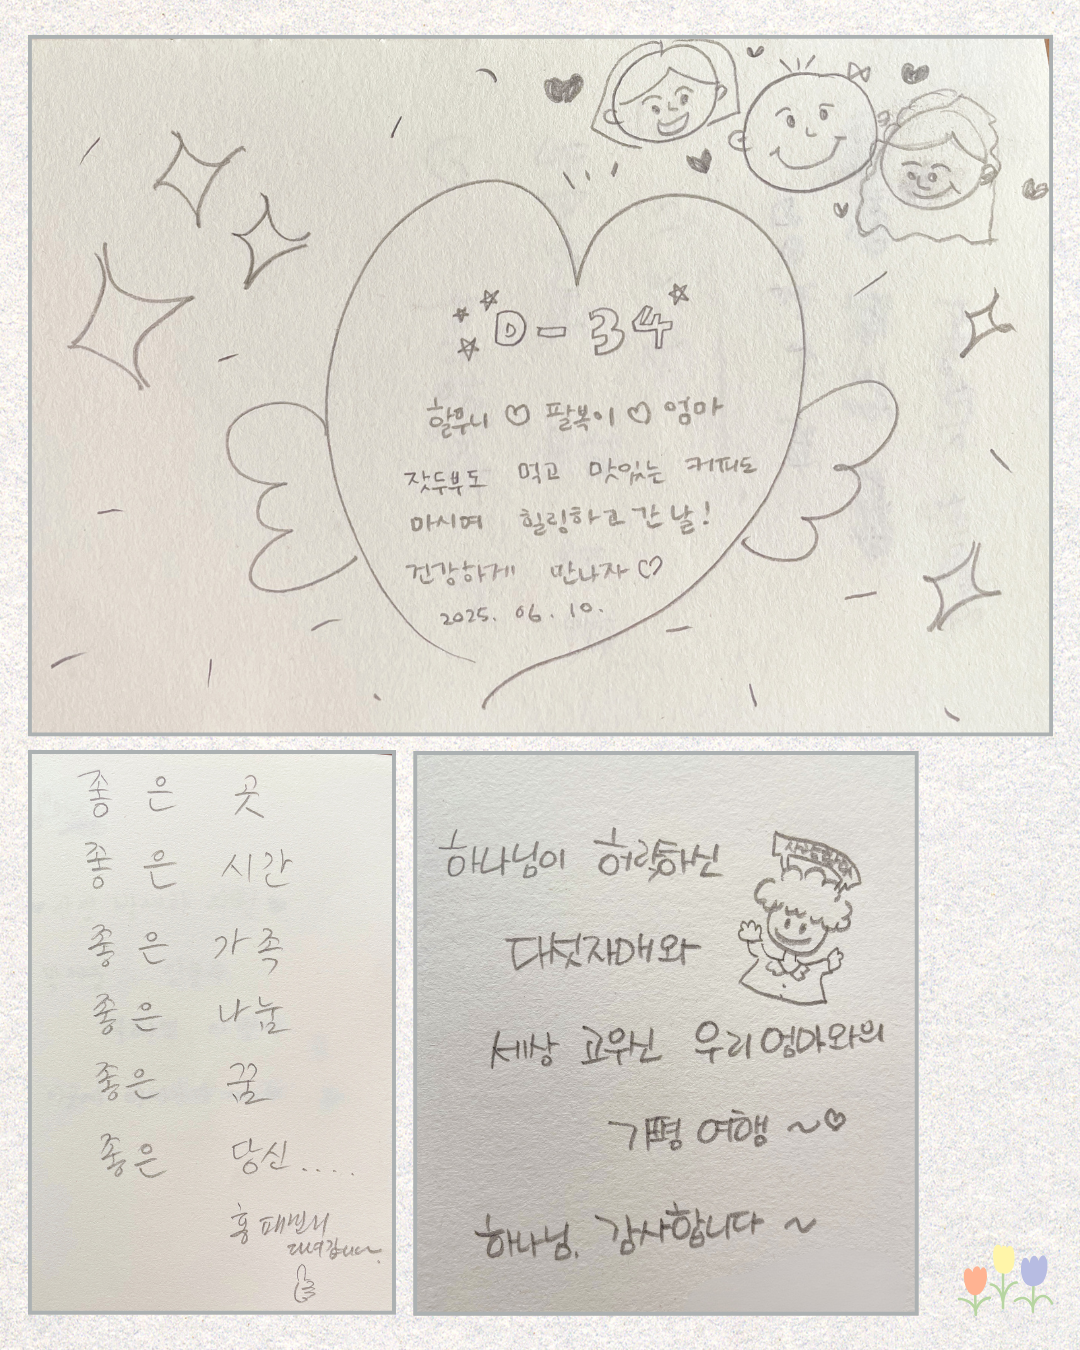 D-34
할무니 ♡ 팔복이 ♡ 엄마
잣두부도 먹고 맛있는 커피도
마시며 힐링하고 간 날!
건강하게 만나자♡
2025. 06. 10.
좋은 곳
좋은 시간
좋은 가족
좋은 나눔
좋은 꿈
좋은 당신.....
홍 패밀리
다녀갑니다.
하나님이 허락하신
다섯자매와
세상 고우신 우리엄마와의
가평 여행 ~♡
하나님. 감사합니다 ~